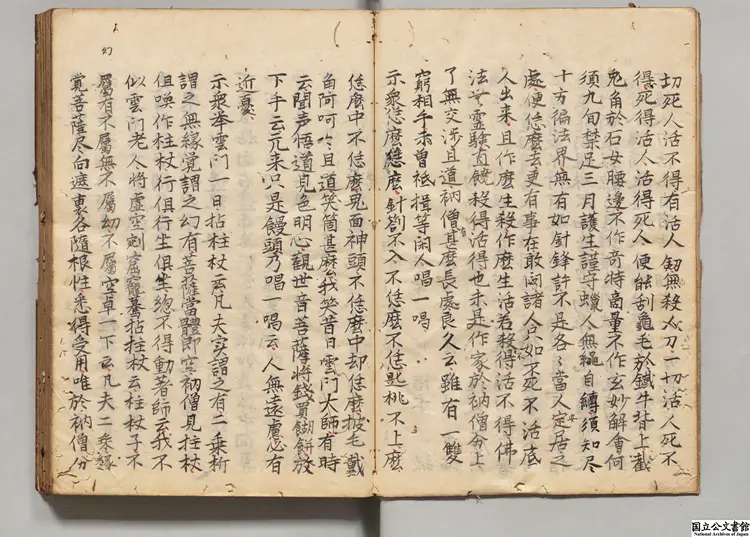 切死人活不得有活人釼無殺人刀一切活人死不
得死得活人活得死人便能刮龜毛於鐵牛背上截
兎角於石女腰邊不作奇特商量不作玄妙解會何
須九旬禁足三月護生謹守蠟人無繩自縛須知尽
十方徧法界無有如針鋒許不是各々當人定居之
處便恁麼去更有事在敢問諸人只如不死不活底
人出来且作麼生殺作麼生活若殺得活不得佛
法無靈驗直饒殺得活得也未是作家於衲僧分上
了無交渉且道衲僧甚麼長處良久云雖有一雙
窮相手未曽祗揖等閑人唱一喝
示衆恁麼恁麼針劄不入不恁麼不恁麼匙桃不上麼
恁麼中不恁麼鬼面神頭不恁麼中却恁麼披毛戴
角阿呵々且道笑箇甚麻我笑昔日雲門大師有時
云聞声悟道見色明心觀世音菩薩将錢買餬餅放
下手云元来只是饅頭乃唱一喝云人無遠慮必有
近憂
示衆举雲門一日拈柱杖云凡夫实謂之有二乗析
謂之無縁覚謂之幻有菩薩當體即空衲僧見拄杖
但喚作柱杖行但行坐但坐総不得動着師云我不
似雲門老人将虚空剜窟窿驀拈拄杖云柱杖子不
屬有不屬無不屬幻不屬空卓一下云凡夫二乗縁
覚菩薩尽向遮裏各随根性悉得受用唯於衲僧分
幻
国立公文書館
National Archives of Japan